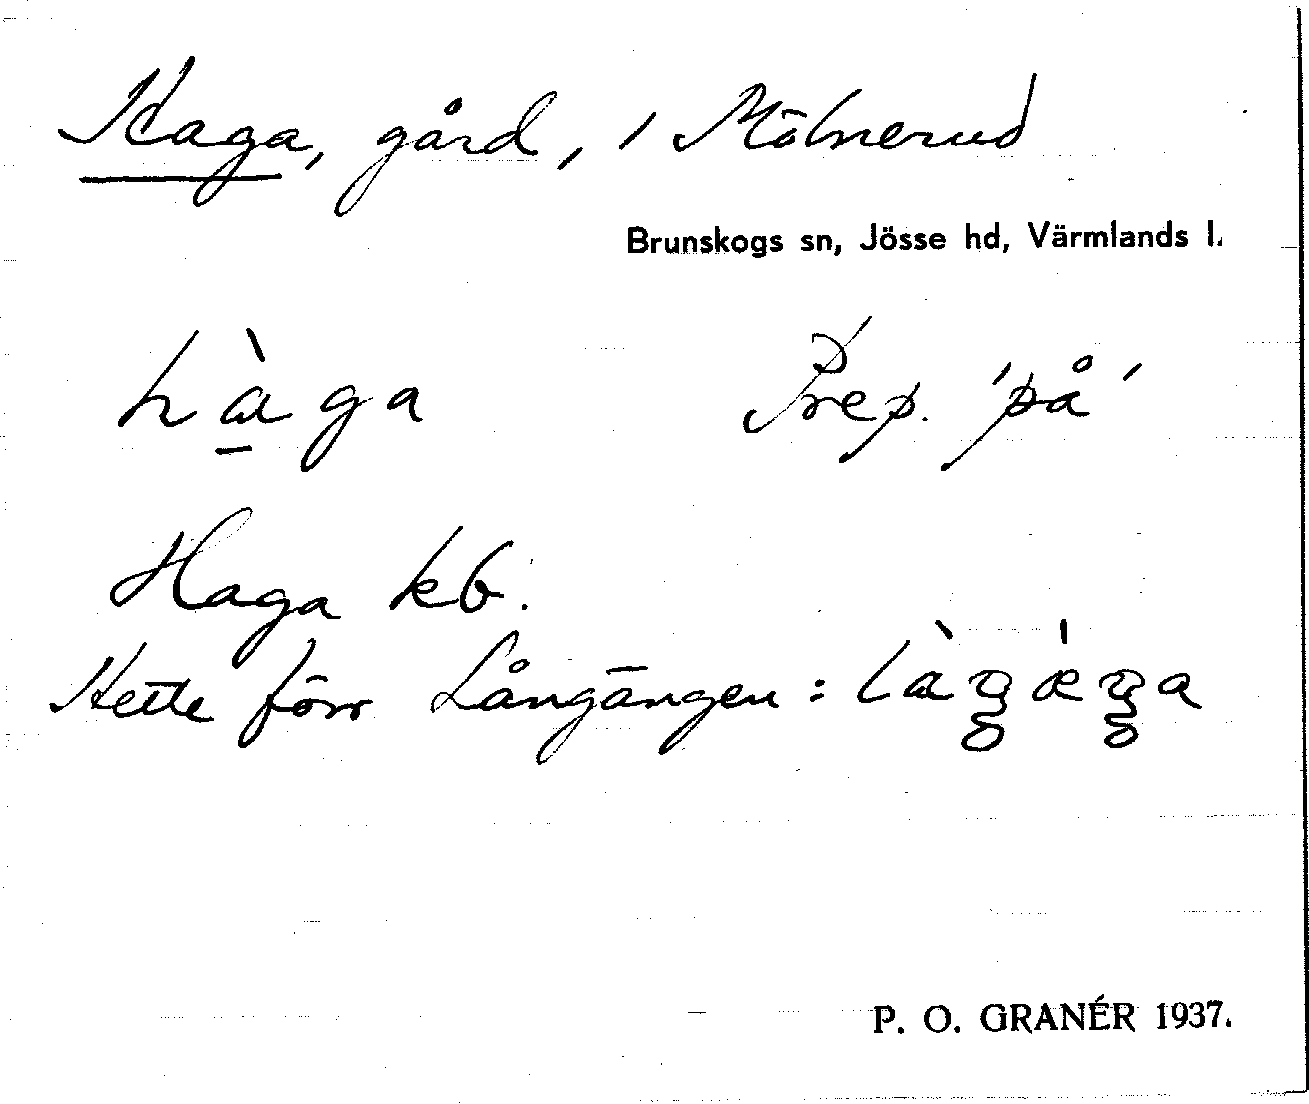 Haga, gård, i Mölnerud
Brunskogs sn, Jösse hd, Värmlands l.
hàga Prep. 'på'
Haga kb.
Hette förr Långängen:
P. O. GRANÉR 1937.